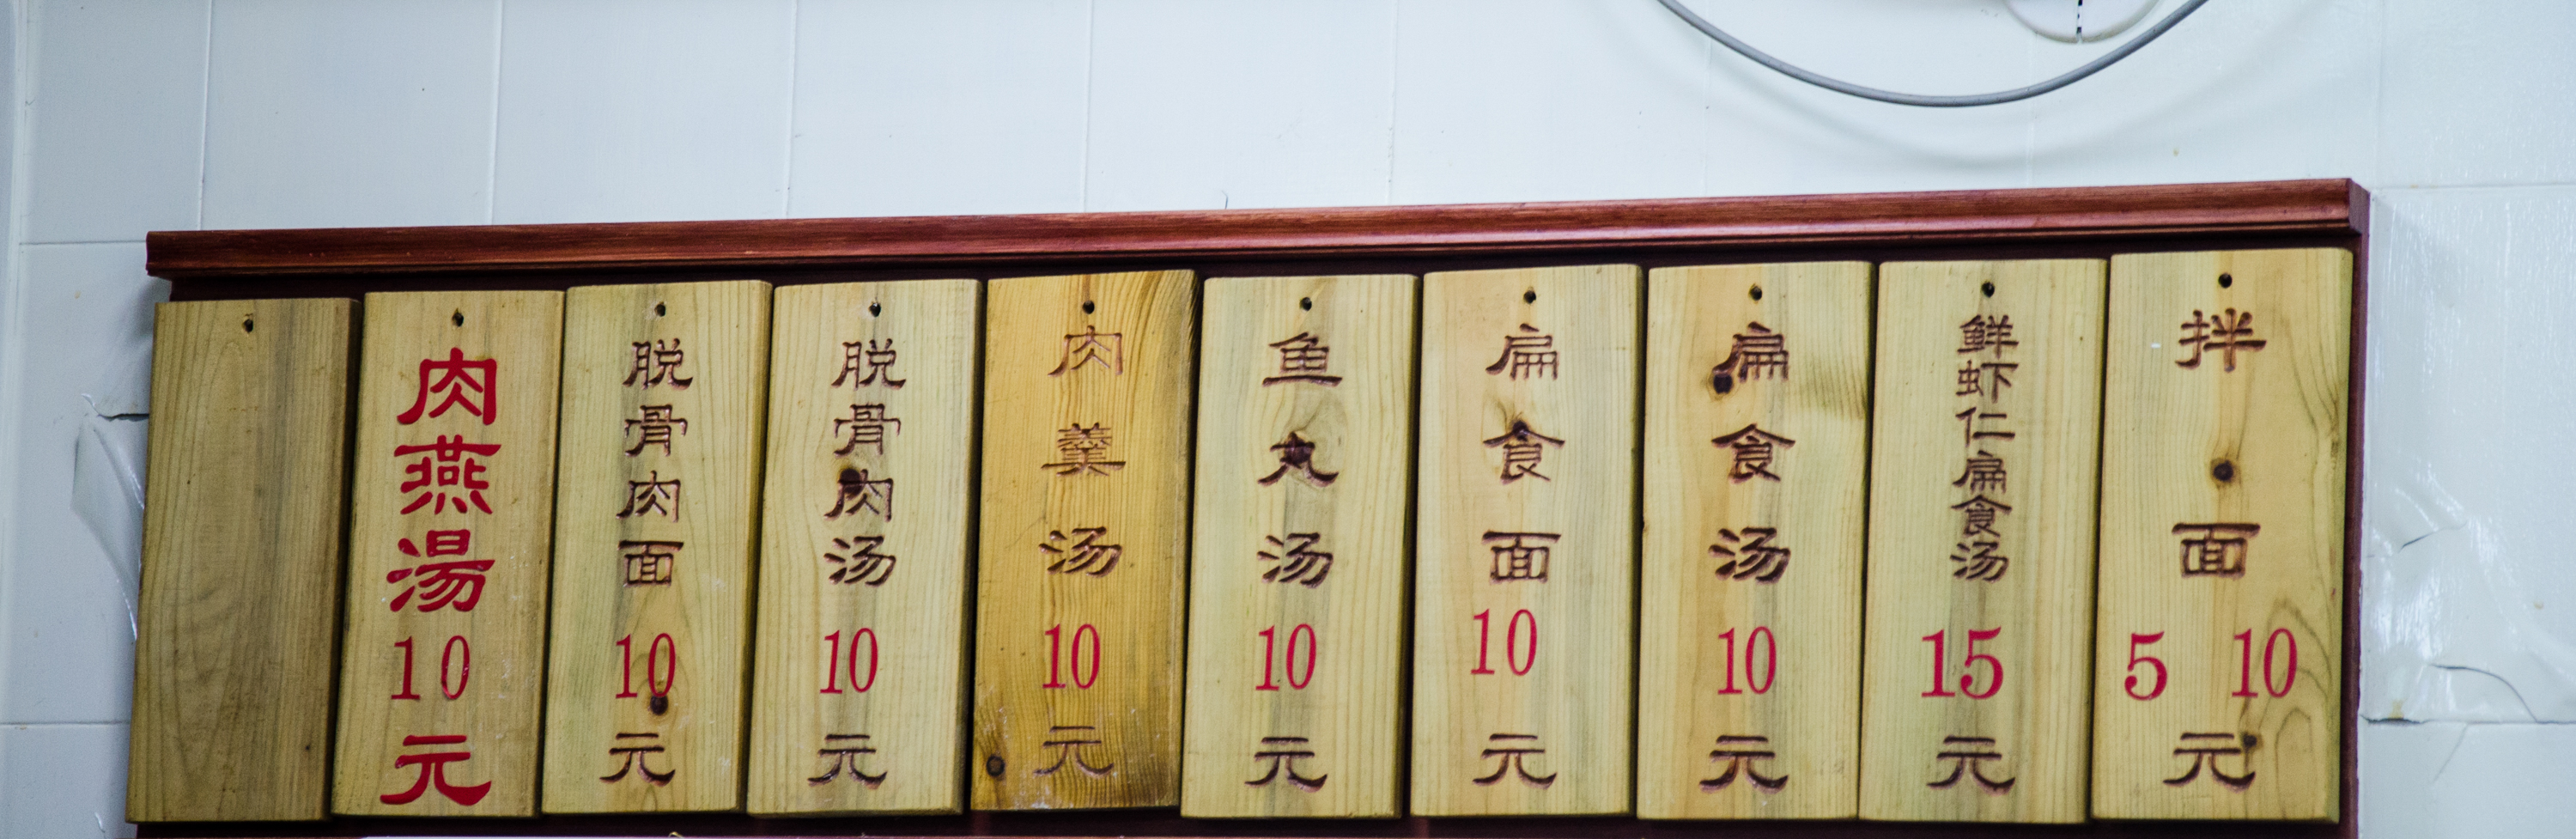 肉燕湯10元
脱骨肉面10元
脱骨肉汤10元
肉羹汤10元
鱼丸汤10元
扁食面10元
扁食汤10元
鲜虾仁扁食汤15元
拌面5 10元